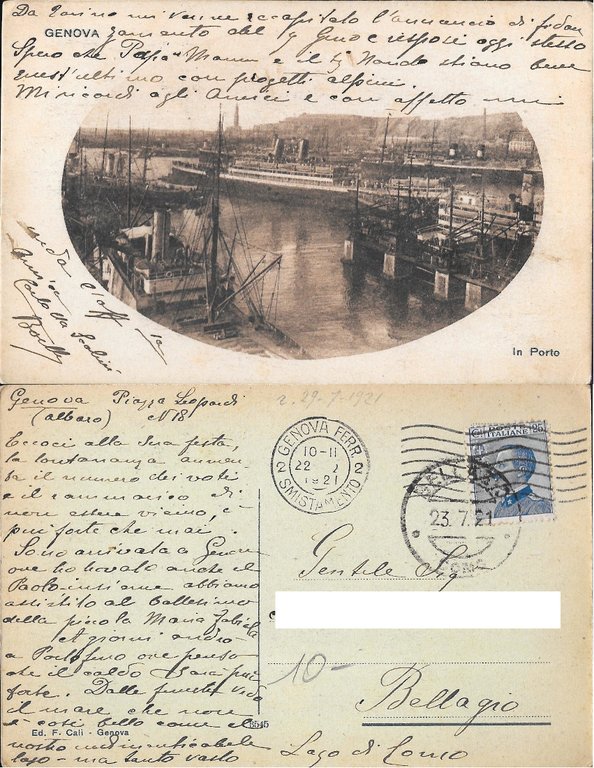 Da Torino mi venne recapitato l'annuncio di fidan
GENOVA
zamento del g Gino e risposi oggi stesso
Spero che Papà Mamma e il Nando stiano bene
quest'ultimo con progetti alpini.
Mi ricordi agli Amici e con affetto mi
creda l'aff
In Porto
Genova Piazza Leopardi
(albaro) N 18
r. 29-7-1921
Eccoci alla Sua festa,
la lontananza aumen
ta il numero dei voti
e il rammarico di
non essere vicino, è
più forte che mai.
Sono arrivata a Genova
ove ho trovato anche il
Paolo insieme abbiamo
assistito al battesimo
della piccola Maria Fabiola
A giorni andrò
a Portofino ove penso
che il caldo sarà più
forte. Dalle finestre vedo
il mare che non
è così bello come il
nostro indimenticabile
lago - ma tanto vasto
GENOVA FERR.
10-11
22
1921
2 2
SMISTAMENTO
POSTE ITALIANE 25
BELLAGIO
23.7.21
COMO
Gentile Sig
10-
Bellagio
Lago di Como
6545
Ed. F. Cali - Genova